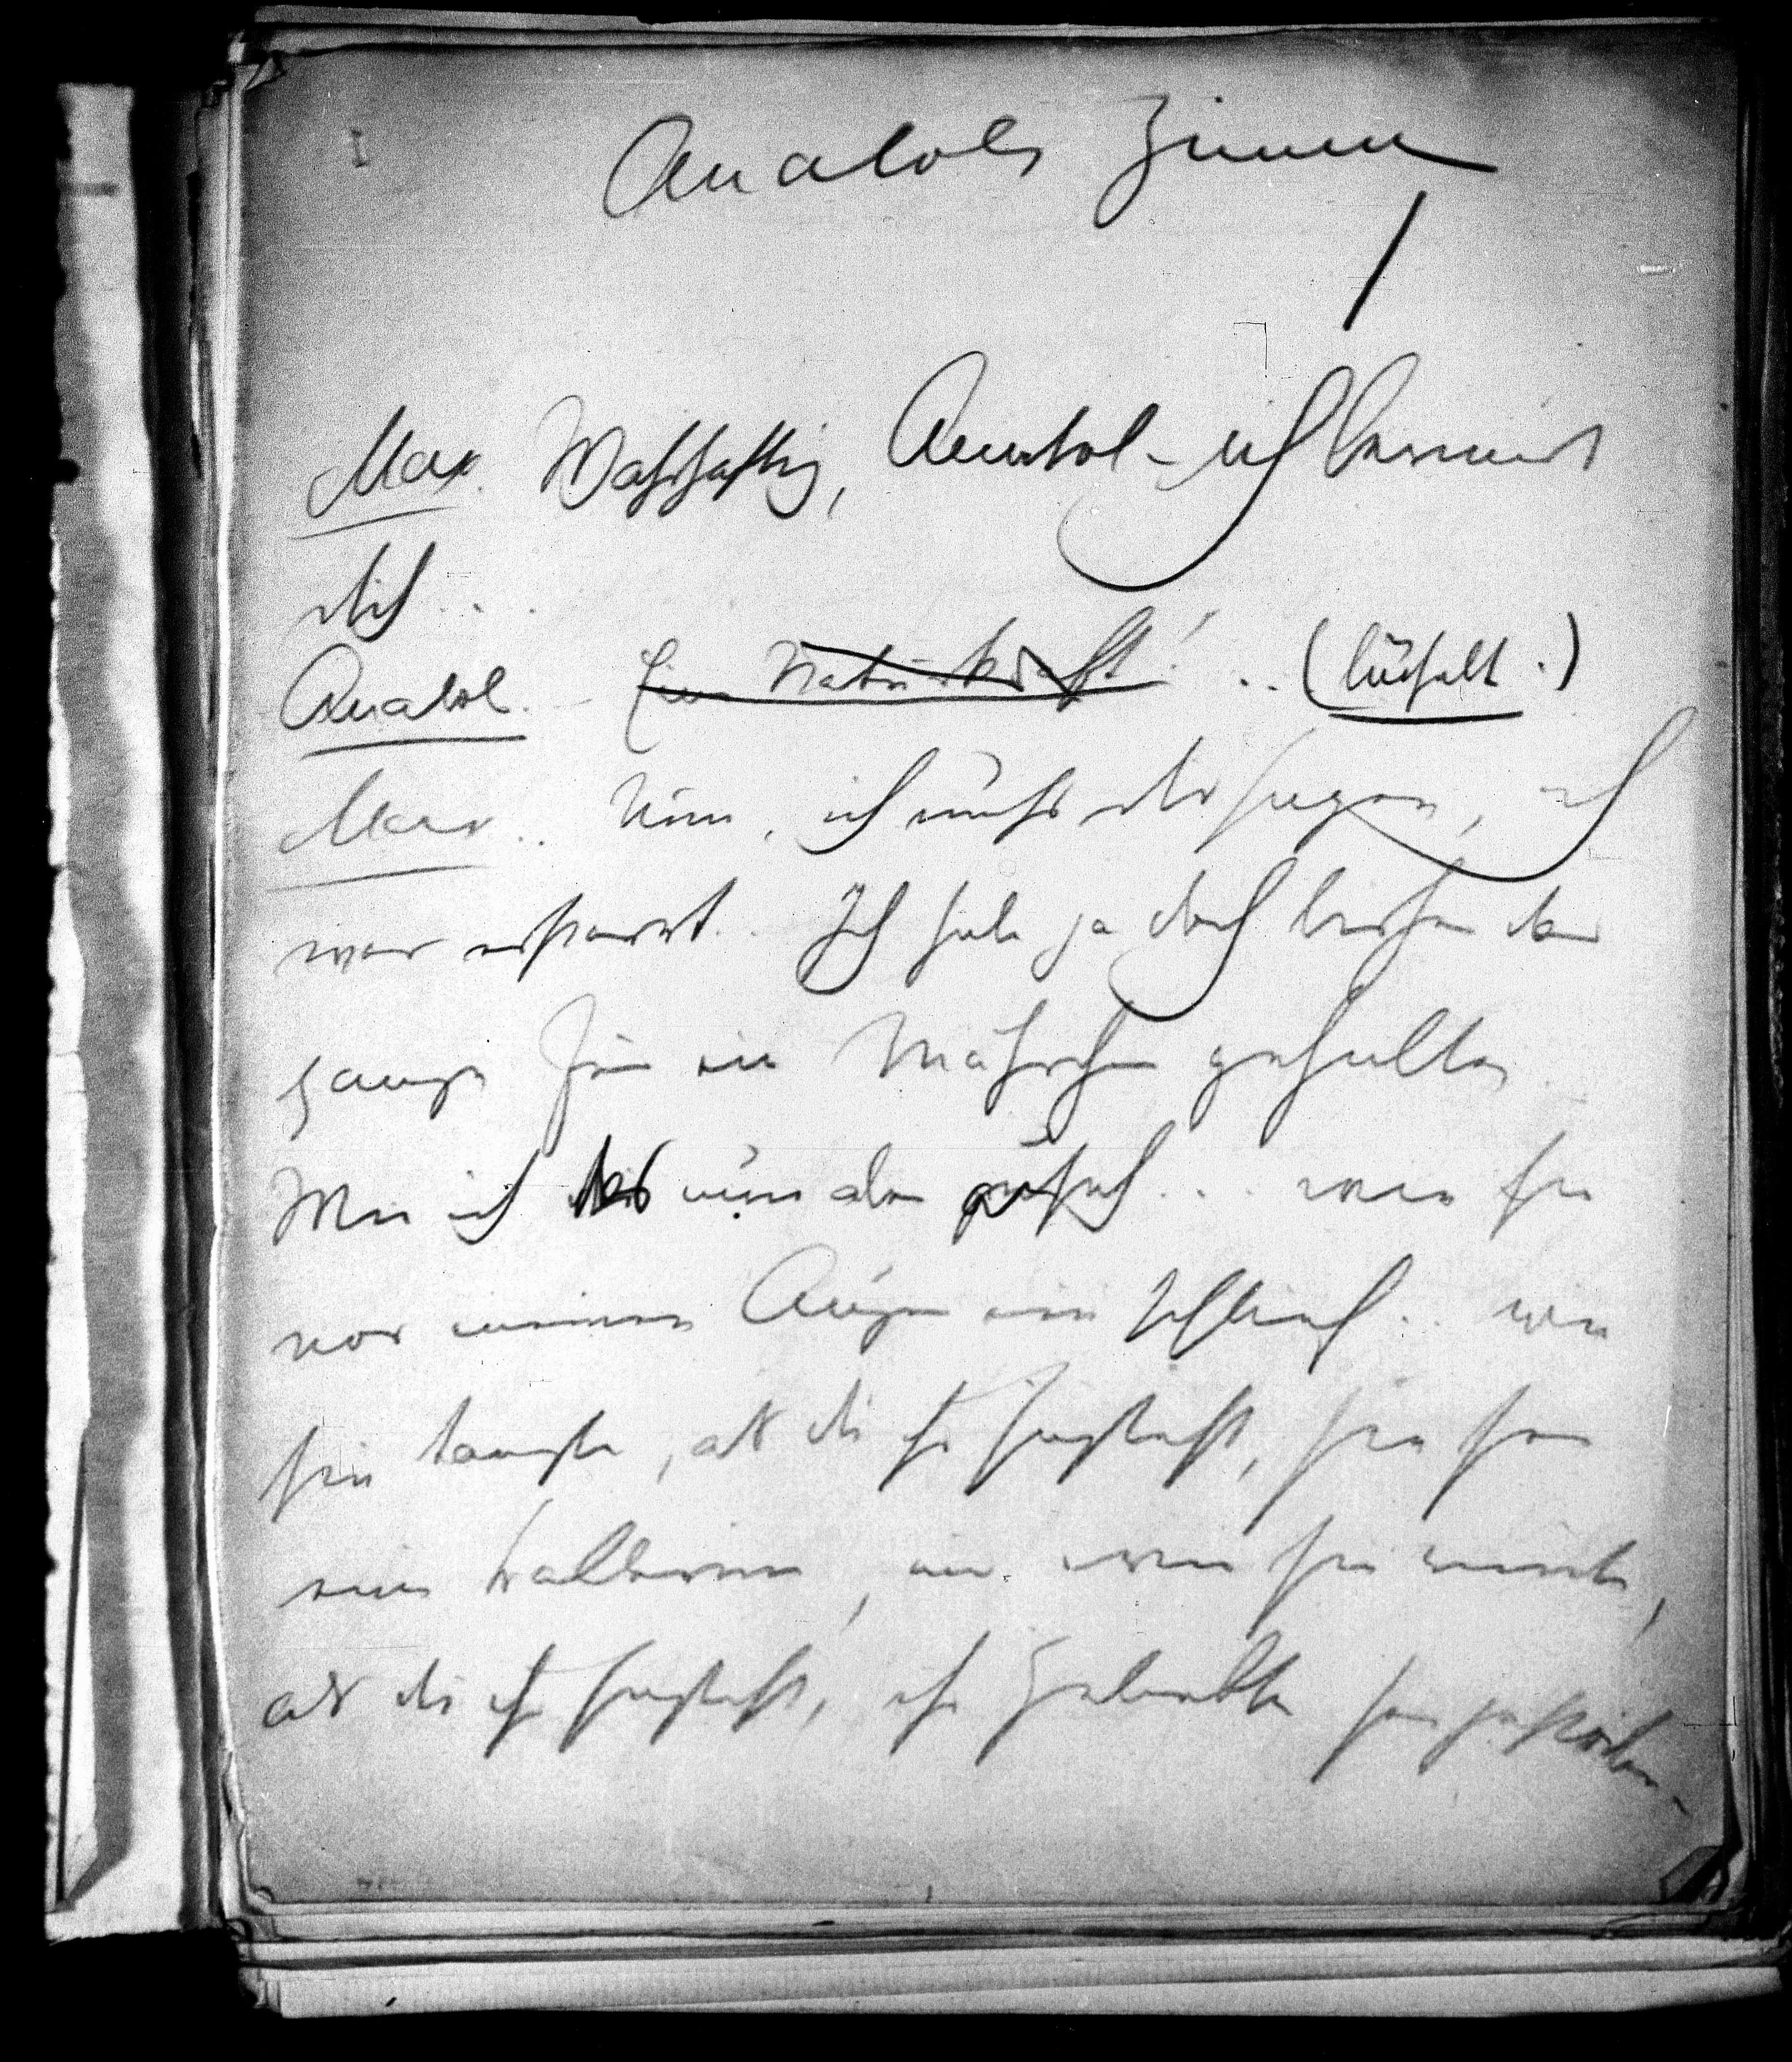 I
Anatols Zimmer
Max. Wahrhaftig, Anatol – ich beneide
dich . . .
Anatol. – Eine Naturkraft! . . (lächelt.)
Max. . Nun, ich muss dir sagen, ich
war erstarrt. . Ich habe ja doch bisher das
ganze für ein Mährchen gehalten.
Wie ich es nun aber sah . . . wie sie
vor meinen Augen einschlief . . wie
sie tanzte, als du ihr sagtest, sie sei
eine Ballerine, u. wie sie weinte,
als du ihr sagtest, ihr Geliebter sei gestorben –